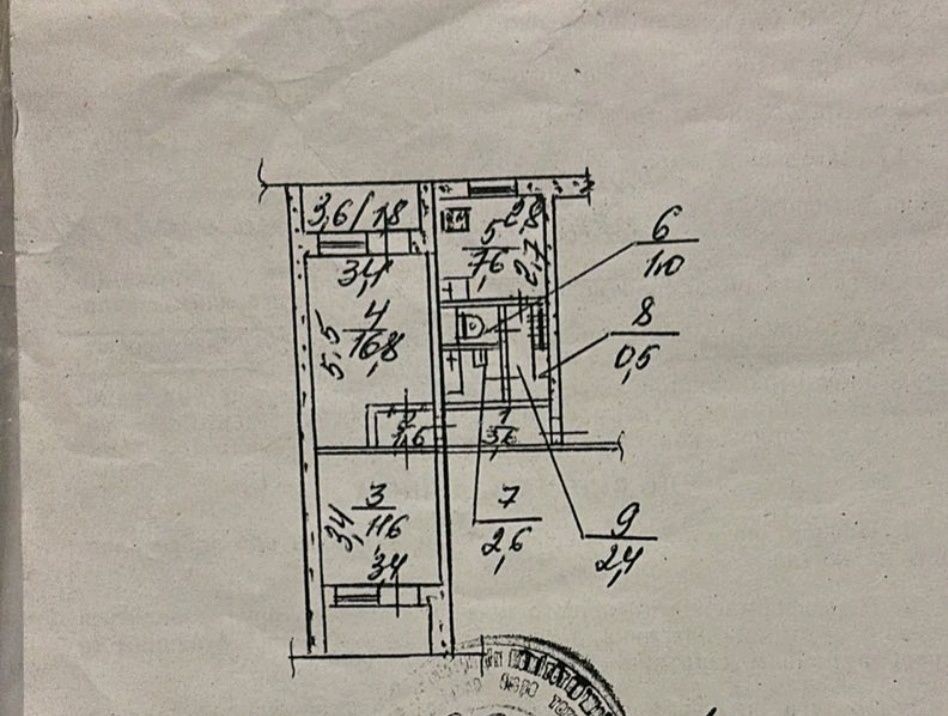 3,6/1,8
2,8
5
7,6
2,7
6
1,0
3,4
4
16,8
5,5
8
0,5
2
1,6
1
3,6
3
11,6
3,4
3,4
7
2,6
9
2,4